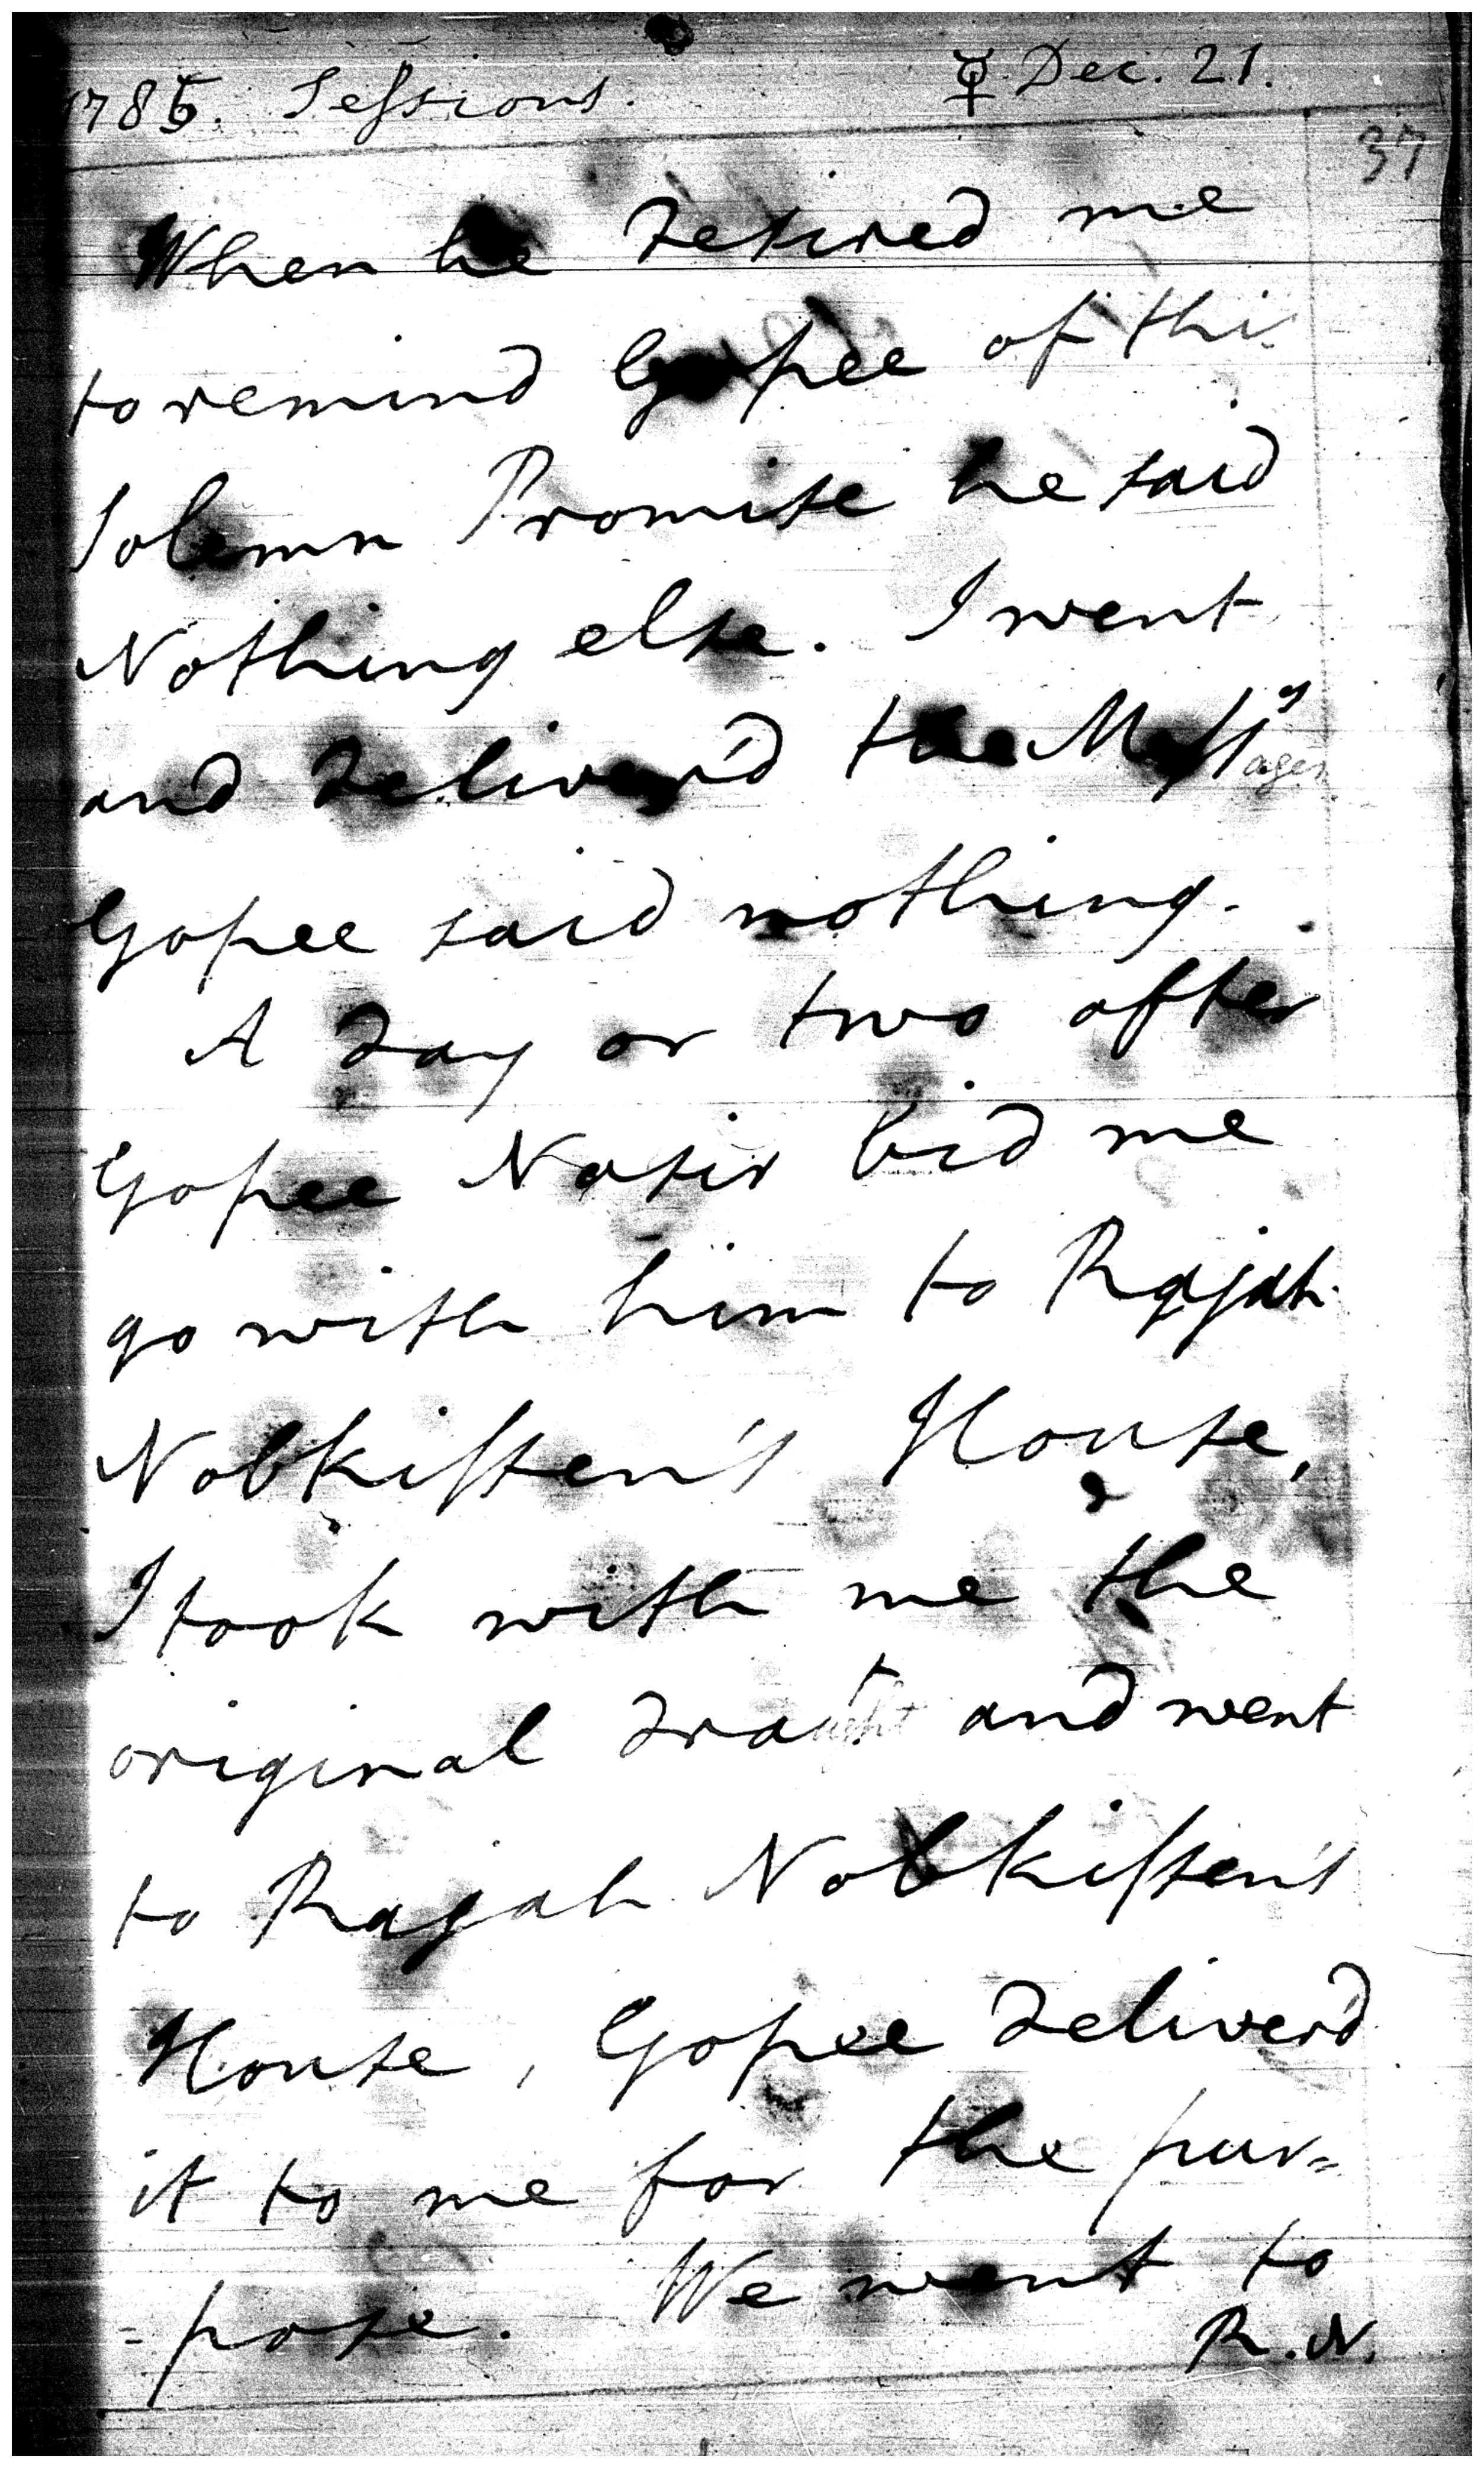 1785. Sessions. ☿ Dec. 21.
37
When he desired me
to remind Gopee of this
Solemn Promise he said
Nothing else. I went
and deliver'd the Mess^g
ages
Gopee said nothing.
A day or two after
Gopee Nasir bid me
go with him to Rajah
Nobkissen's House,
I took with me the
original draught and went
to Rajah Nobkissen's
House, Gopee deliver'd
it to me for the pur=
=pose. We went to
R. N.